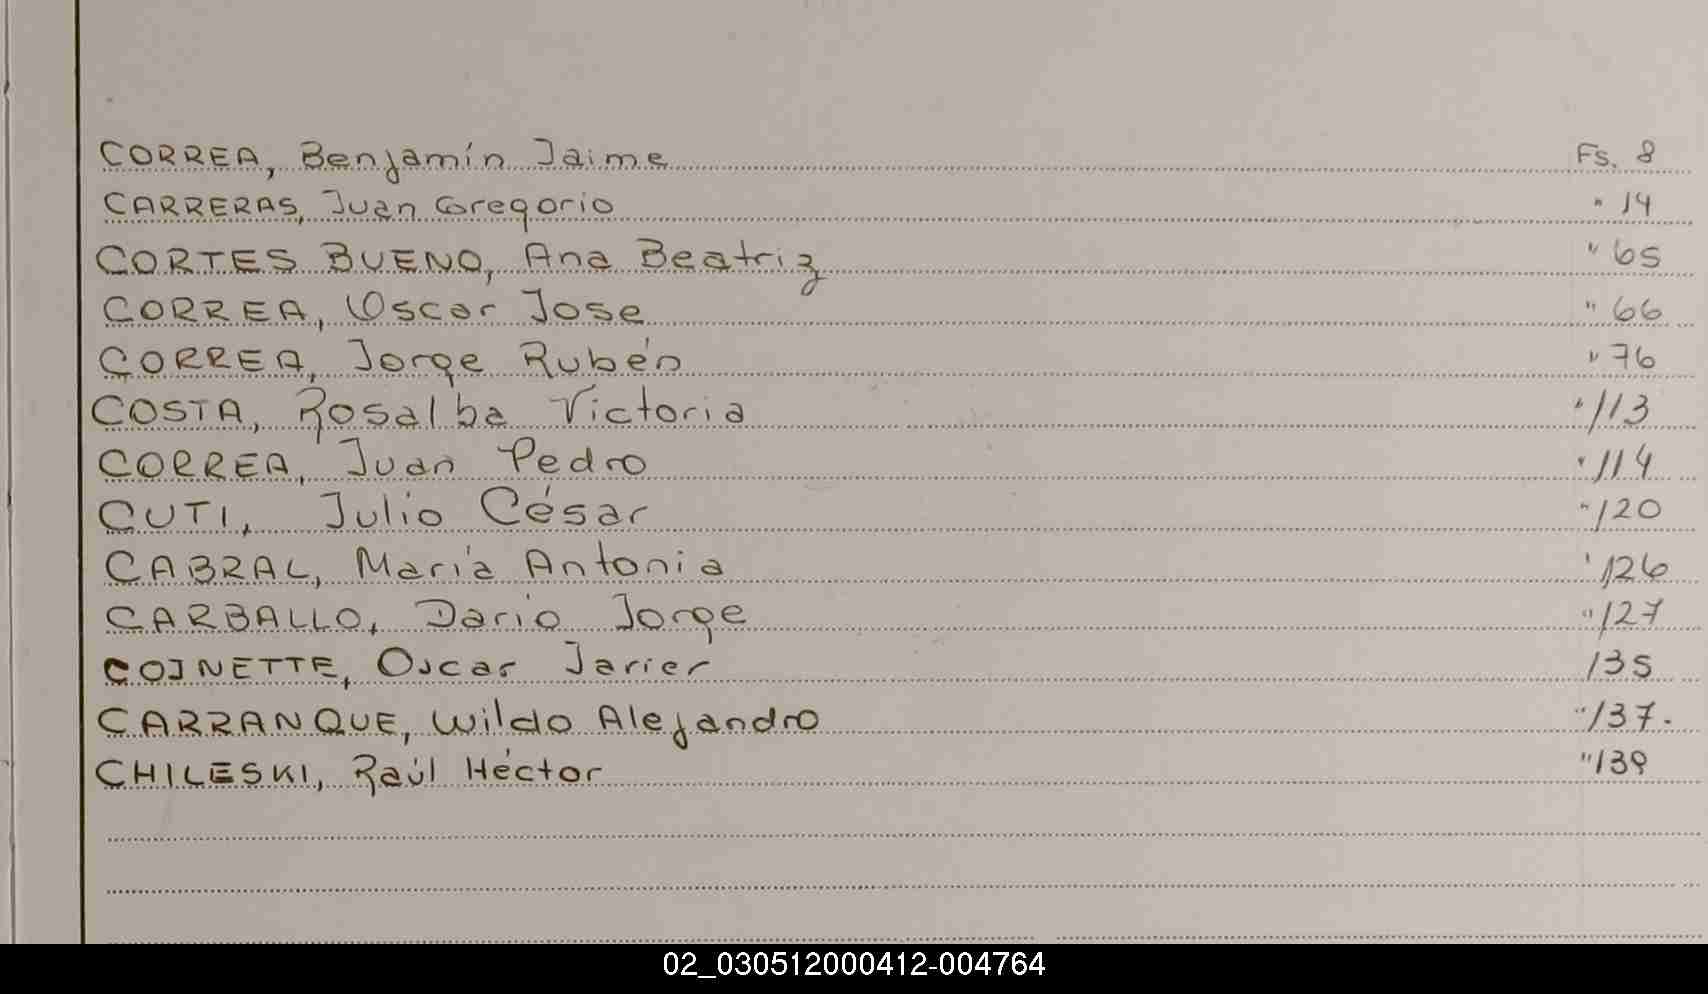 CORREA, Benjamín Jaime Fs. 8
CARRERAS, Juan Gregorio " 14
CORTES BUENO, Ana Beatriz " 65
CORREA, Oscar Jose " 66
CORREA, Jorge Rubén " 76
COSTA, Rosalba Victoria " 113
CORREA, Juan Pedro " 114
CUTI, Julio César " 120
CABRAL, María Antonia " 126
CARBALLO, Dario Jorge " 127
COINETTE, Oscar Javier 135
CARRANQUE, Wildo Alejandro " 137.
CHILESKI, Raúl Héctor " 139
02_030512000412-004764